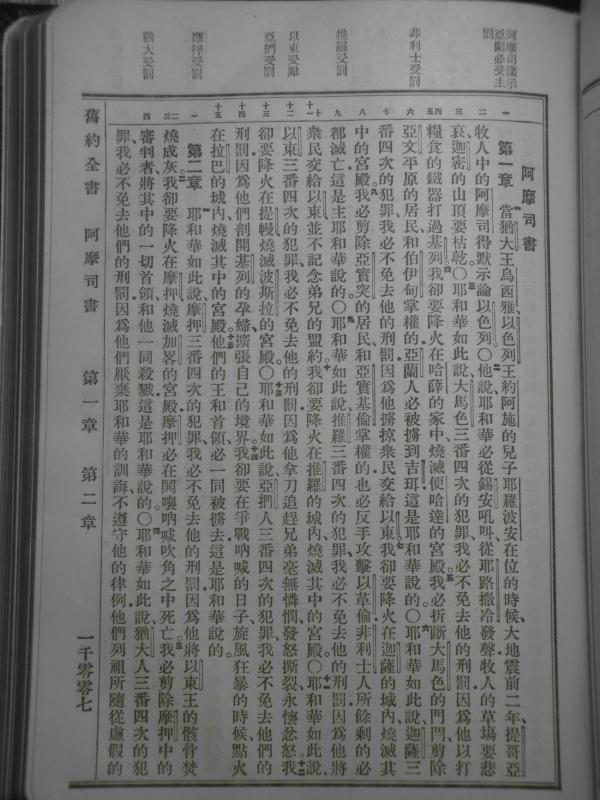 阿摩司書
第一章 當猶大王烏西雅以色列王約阿施的兒子耶羅波安在位的時候大地震前二年提哥亞
牧人中的阿摩司得默示論以色列〇他說耶和華必從錫安吼叫從耶路撒冷發聲牧人的草場要悲
哀迦密的山頂要枯乾〇耶和華如此說大馬色三番四次的犯罪我必不免去他的刑罰因為他以打
糧食的鐵器打過基列我卻要降火在哈薛的家中燒滅便哈達的宮殿我必折斷大馬色的門閂剪除
亞文平原的居民和伯伊甸掌權的亞蘭人必被擄到吉珥這是耶和華說的〇耶和華如此說迦薩三
番四次的犯罪我必不免去他的刑罰因為他擄掠眾民交給以東我卻要降火在迦薩的城內燒滅其
中的宮殿我必剪除亞實突的居民和亞實基倫掌權的也必反手攻擊以革倫非利士人所餘剩的必
都滅亡這是主耶和華說的〇耶和華如此說推羅三番四次的犯罪我必不免去他的刑罰因為他將
眾民交給以東並不記念弟兄的盟約我卻要降火在推羅的城內燒滅其中的宮殿〇耶和華如此說
以東三番四次的犯罪我必不免去他的刑罰因為他拿刀追趕兄弟毫無憐憫發怒撕裂永懷忿怒我
卻要降火在提幔燒滅波斯拉的宮殿〇耶和華如此說亞捫人三番四次的犯罪我必不免去他們的
刑罰因為他們剖開基列的孕婦擴張自己的境界我卻要在爭戰吶喊的日子旋風狂暴的時候點火
在拉巴的城內燒滅其中的宮殿他們的王和首領必一同被擄去這是耶和華說的
第二章 耶和華如此說摩押三番四次的犯罪我必不免去他的刑罰因為他將以東王的骸骨焚
燒成灰我卻要降火在摩押燒滅加畧的宮殿摩押必在鬨嚷吶喊吹角之中死亡我必剪除摩押中的
審判者將其中的一切首領和他一同殺戮這是耶和華說的〇耶和華如此說猶大人三番四次的犯
罪我必不免去他們的刑罰因為他們厭棄耶和華的訓誨不遵守他的律例他們列祖所隨從虛假的
舊約全書 阿摩司書 第一章 第二章 一千零零七
亞蘭必受主罰
非利士受罰
推羅受罰
以東受罪
亞捫受罰
摩押受罰
猶大受罰